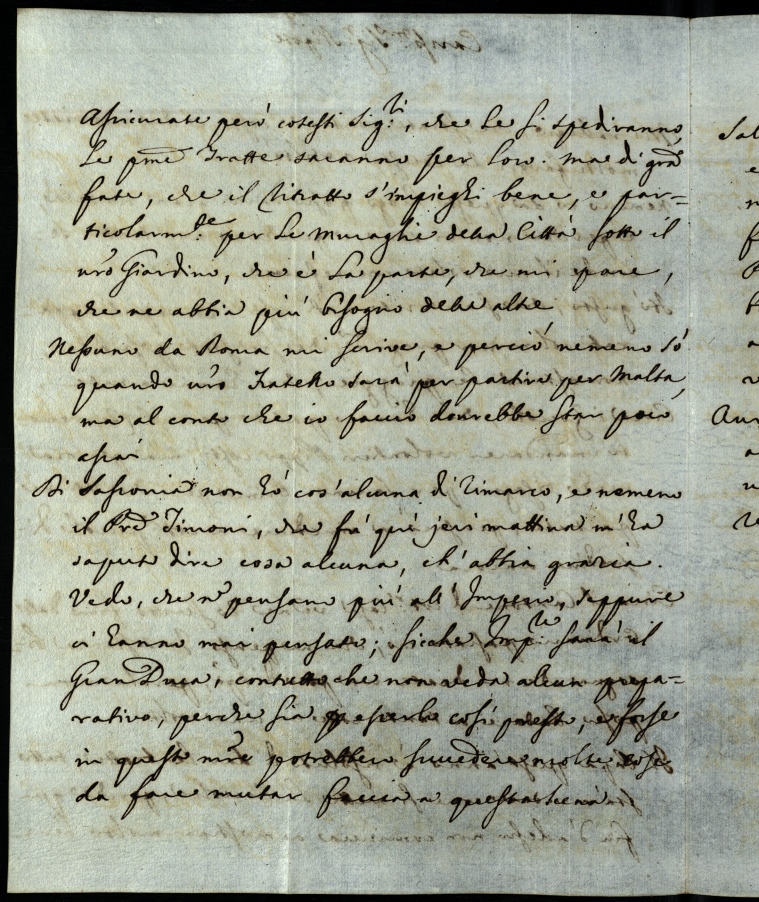 Assicurate però cotesti Sig.ri, che se si spediranno,
le pme Tratte saranno per loro. ma di gra
fate, che il ritratto s'impieghi bene, e par=
ticolarm.te per le muraglie della Città sotto il
vro Giardino, che è la parte, che mi pare,
che ne abbia più bisogno delle altre
Nessuno da Roma mi scrive, e perciò nemeno sò
quando vro Fratello sarà per partire per Malta,
ma al conto che io faccio dovrebbe star poco
assai
Di Sassonia non hò cos'alcuna di rimarco, e nemeno
il Pre Timoni, che fù quì jeri mattina m'ha
saputo dire cosa alcuna, ch'abbia grazia.
Vedo, che n pensano più all'Impero, seppure
ci hanno mai pensato; sicche Imp.re sarà il
Gran Duca, contutto che non veda alcun prepa=
rativo, perche sia per esserlo così presto, e forse
in questo mre potrebbero succedere molte cose
da fare mutar faccia a questa scena